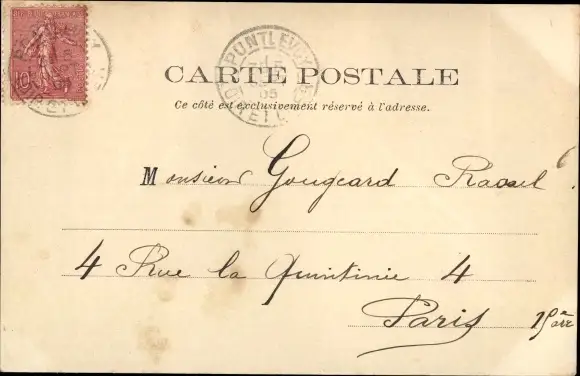 PONTLEVOY
05
CARTE POSTALE
Ce côté est exclusivement réservé à l'adresse.
10
Monsieur Gougeard Raoul
4 Rue la Quintinie 4
Paris 15e arr